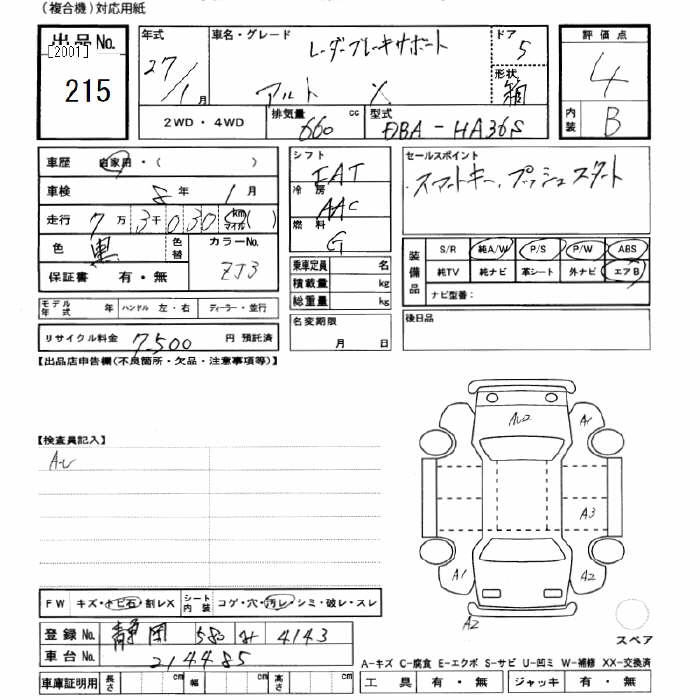 （複合機）対応用紙
出品No.
[2001]
215
年式
27/1月
車名・グレード
レーダーブレーキサポート
アルト X
ドア
5
形状
箱
評価点
4
内装
B
2WD・4WD
排気量 660 cc
型式 DBA-HA36S
車歴 自家用・（ ）
車検 8年 1月
走行 7万 3千 0 30 km マイル ( )
色 黒 色替
カラーNo. ZJ3
保証書 有・無
モデル年式 年 ハンドル 左・右 ディーラー・並行
リサイクル料金 7500 円 預託済
シフト
IAT
冷房
AAC
燃料
G
乗車定員 名
積載量 kg
総重量 kg
名変期限
月 日
セールスポイント
・スマートキー、プッシュスタート
装備品
S/R 純A/W P/S P/W ABS
純TV 純ナビ 革シート 外ナビ エアB
ナビ型番：
後日品
【出品店申告欄(不良箇所・欠品・注意事項等)】
【検査員記入】
A1
A3
A1 A2
A2
スペア
FW キズ・トビ石・割レX シート内装 コゲ・穴・汚レ・シミ・破レ・スレ
登録No. 静岡 580 4143
車台No. 214485
A-キズ C-腐食 E-エクボ S-サビ U-凹ミ W-補修 XX-交換済
車庫証明用 長さ cm 幅 cm 高さ cm
工具 有・無 ジャッキ 有・無